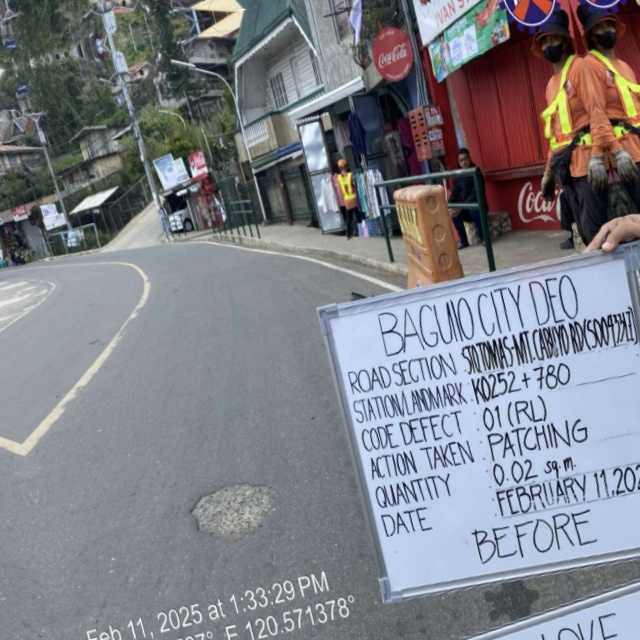 IVAN'S
Coca-Cola
Coca-Cola
BAGUIO CITY DEO
ROAD SECTION
STATION/LANDMARK K0252+780
CODE DEFECT 01 (RL)
ACTION TAKEN PATCHING
QUANTITY 0.02 sq.m.
DATE FEBRUARY 11, 202
BEFORE
Feb 11, 2025 at 1:33:29 PM
E 120.571378°